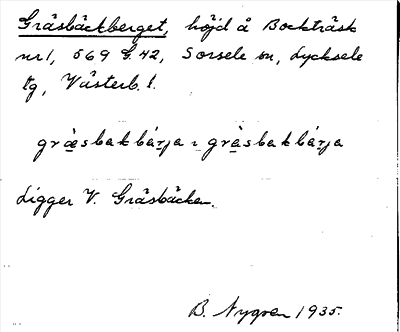 Gräsbäckberget, höjd å Bockträsk
nr 1, 569 G. 42, Sorsele sn, Lycksele
tg, Västerb. l.
græsbakbärja ı gräsbakbärja
Ligger V. Gräsbäcken.
B. Nygren 1935.